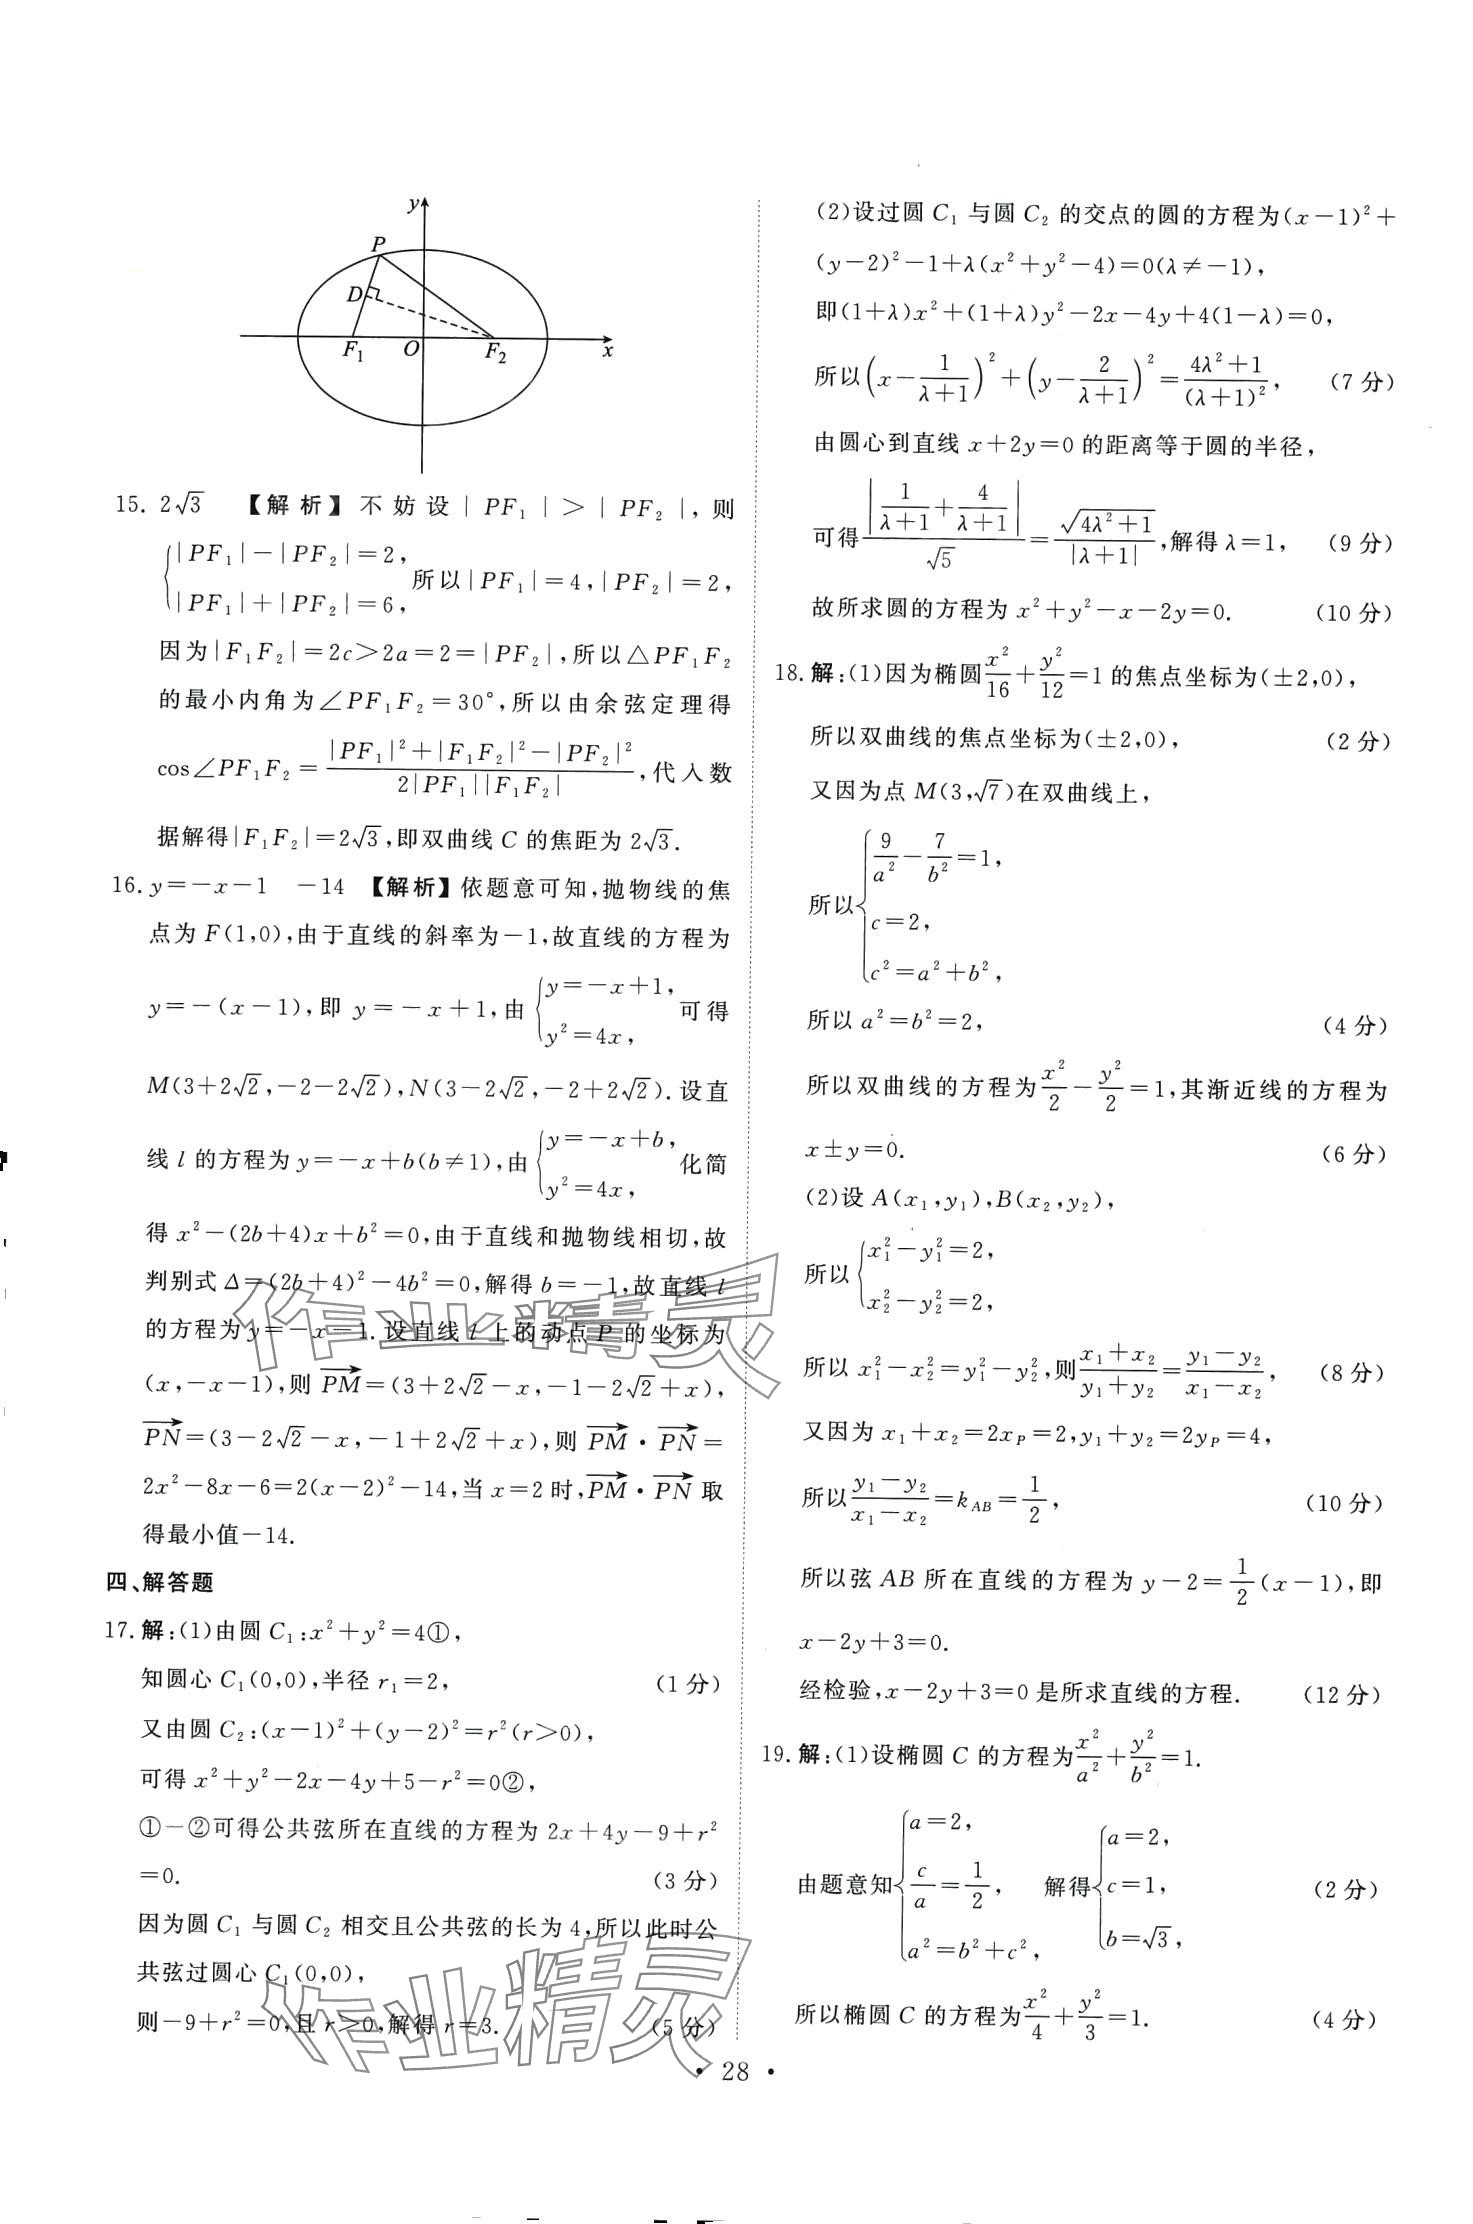 y
P
D
F₁ O F₂ x
15. 2√3 【解析】不妨设|PF₁|>|PF₂|,则
{|PF₁|-|PF₂|=2,
|PF₁|+|PF₂|=6, 所以|PF₁|=4,|PF₂|=2,
因为|F₁F₂|=2c>2a=2=|PF₂|,所以△PF₁F₂
的最小内角为∠PF₁F₂=30°,所以由余弦定理得
cos∠PF₁F₂=(|PF₁|²+|F₁F₂|²-|PF₂|²)/(2|PF₁||F₁F₂|),代入数
据解得|F₁F₂|=2√3,即双曲线 C 的焦距为 2√3.
16. y=-x-1 -14 【解析】依题意可知,抛物线的焦
点为 F(1,0),由于直线的斜率为-1,故直线的方程为
y=-(x-1),即 y=-x+1,由{y=-x+1, y²=4x, 可得
M(3+2√2,-2-2√2),N(3-2√2,-2+2√2).设直
线 l 的方程为 y=-x+b(b≠1),由{y=-x+b, y²=4x, 化简
得 x²-(2b+4)x+b²=0,由于直线和抛物线相切,故
判别式 Δ=(2b+4)²-4b²=0,解得 b=-1,故直线 l
的方程为 y=-x-1.设直线 l 上的动点 P 的坐标为
(x,-x-1),则 PM→=(3+2√2-x,-1-2√2+x),
PN→=(3-2√2-x,-1+2√2+x),则 PM→·PN→=
2x²-8x-6=2(x-2)²-14,当 x=2 时,PM→·PN→取
得最小值-14.
四、解答题
17. 解:(1)由圆 C₁:x²+y²=4①,
知圆心 C₁(0,0),半径 r₁=2, (1 分)
又由圆 C₂:(x-1)²+(y-2)²=r²(r>0),
可得 x²+y²-2x-4y+5-r²=0②,
①-②可得公共弦所在直线的方程为 2x+4y-9+r²
=0. (3 分)
因为圆 C₁ 与圆 C₂ 相交且公共弦的长为 4,所以此时公
共弦过圆心 C₁(0,0),
则-9+r²=0,且 r>0,解得 r=3. (5 分)
(2)设过圆 C₁ 与圆 C₂ 的交点的圆的方程为(x-1)²+
(y-2)²-1+λ(x²+y²-4)=0(λ≠-1),
即(1+λ)x²+(1+λ)y²-2x-4y+4(1-λ)=0,
所以(x-1/(λ+1))²+(y-2/(λ+1))²=(4λ²+1)/(λ+1)², (7 分)
由圆心到直线 x+2y=0 的距离等于圆的半径,
可得|1/(λ+1)+4/(λ+1)|/√5=√(4λ²+1)/|λ+1|,解得 λ=1, (9 分)
故所求圆的方程为 x²+y²-x-2y=0. (10 分)
18. 解:(1)因为椭圆 x²/16+y²/12=1 的焦点坐标为(±2,0),
所以双曲线的焦点坐标为(±2,0), (2 分)
又因为点 M(3,√7)在双曲线上,
所以{9/a²-7/b²=1,
c=2,
c²=a²+b²,
所以 a²=b²=2, (4 分)
所以双曲线的方程为 x²/2-y²/2=1,其渐近线的方程为
x±y=0. (6 分)
(2)设 A(x₁,y₁),B(x₂,y₂),
所以{x₁²-y₁²=2,
x₂²-y₂²=2,
所以 x₁²-x₂²=y₁²-y₂²,则(x₁+x₂)/(y₁+y₂)=(y₁-y₂)/(x₁-x₂), (8 分)
又因为 x₁+x₂=2x_P=2,y₁+y₂=2y_P=4,
所以(y₁-y₂)/(x₁-x₂)=k_AB=1/2, (10 分)
所以弦 AB 所在直线的方程为 y-2=1/2(x-1),即
x-2y+3=0.
经检验,x-2y+3=0 是所求直线的方程. (12 分)
19. 解:(1)设椭圆 C 的方程为 x²/a²+y²/b²=1.
由题意知{a=2, c/a=1/2, a²=b²+c², 解得{a=2, c=1, b=√3, (2 分)
所以椭圆 C 的方程为 x²/4+y²/3=1. (4 分)
作业精灵
作业精灵
· 28 ·